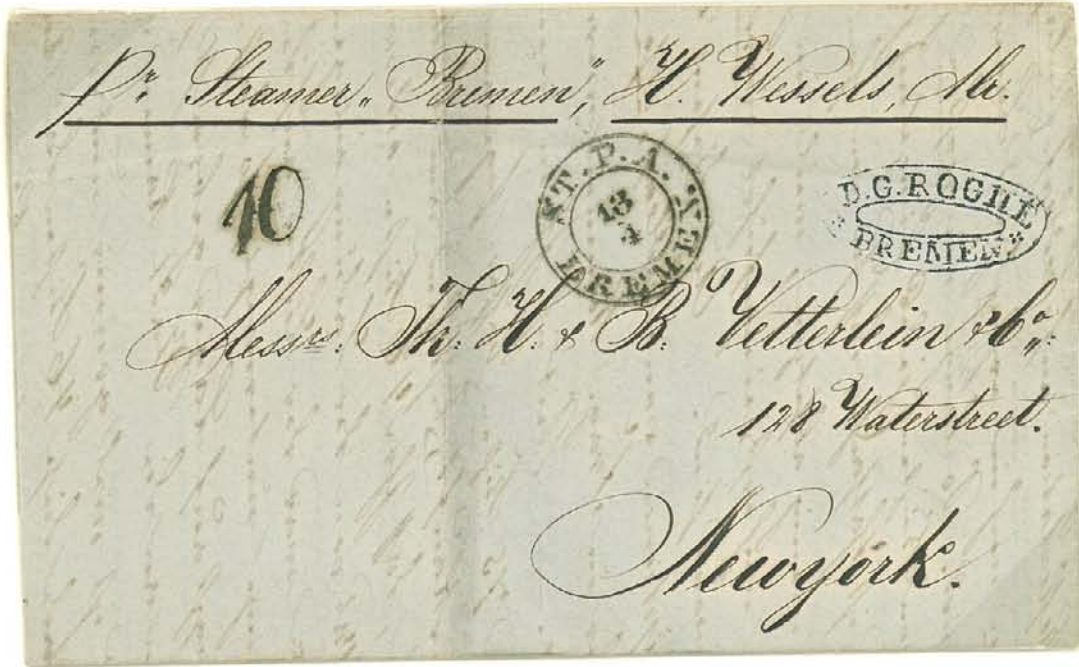 pr. Steamer „Bremen", H. Wessels, Mr.
10
ST. P. A. XEX
13
4
BREMEN
D. G. ROGHÉ
* BREMEN *
Messrs. Th. H. & B. Vetterlein & Co.
128 Waterstreet.
Newyork.